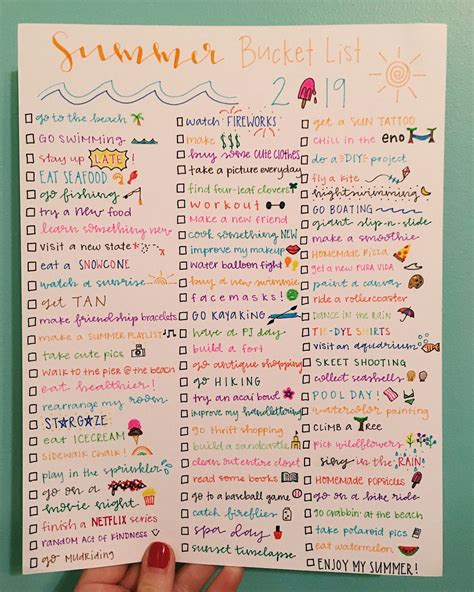 Summer Bucket List
2019
go to the beach
GO SWIMMING
stay up LATE!
EAT SEAFOOD
go fishing
try a new food
learn something new
visit a new state
eat a SNOWCONE
watch a sunrise
get TAN
make friendship bracelets
MAKE A SUMMER PLAYLIST
take cute pics
WALK TO THE PIER @ THE BEACH
eat healthier!
rearrange my room
STARGAZE
eat ICECREAM
SIDEWALK CHALK!
play in the sprinkler
go on a
movie night
finish a NETFLIX series
RANDOM ACT OF KINDNESS
go MUDRIDING
watch FIREWORKS
make $$$
buy some cute clothes
take a picture everyday
find four-leaf clover
workout
Make a new friend
cook something NEW
improve my makeup
water balloon fight
buy a new swimmie
facemasks!
GO KAYAKING
have a PJ day
build a fort
go antique shopping
go HIKING
try an acai bowl
improve my handlettering
go thrift shopping
build a sandcastle
clean out entire closet
read some books
go to a baseball game
catch fireflies
spa day
sunset timelapse
get a SUN TATTOO
CHILL IN THE eno
do a DIY project
fly a kite
nightswimming
GO BOATING
giant slip-n-slide
make a smoothie
HOMEMADE PIZZA
get a new PURA VIDA
paint a canvas
ride a rollercoaster
DANCE IN THE RAIN
TIE-DYE SHIRTS
visit an aquarium
SKEET SHOOTING
collect seashells
POOL DAY!
watercolor painting
CLIMB A TREE
pick wildflowers
sing in the RAIN!
HOMEMADE POPSICLES
go on a bike ride
GO CRABBIN' AT THE BEACH
take polaroid pics
eat watermelon
ENJOY MY SUMMER!